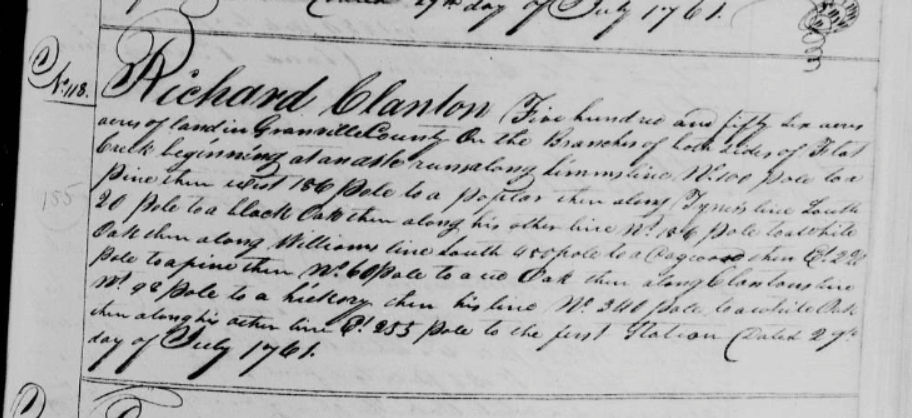 Dated 29th day of July 1761.
No. 118.
Richard Clanton Five hundred and fifty six acres
acres of land in Granville County On the Branches of both sides of Flat
Creek beginning at an along line No. 100 pole to a
pine then West 186 pole to a poplar then along line South
20 pole to a black Oak then along his other line No. 186 pole to a white
Oak then along Williams line South 450 pole to a Dogwood then Et. 220
155
Pole to a pine then No. 60 pole to a red Oak then along Clantons line
No. 98 pole to a hickory then his line No. 340 pole to a white Oak
then along his other line Et. 255 pole to the first Station Dated 29th
day of July 1761.